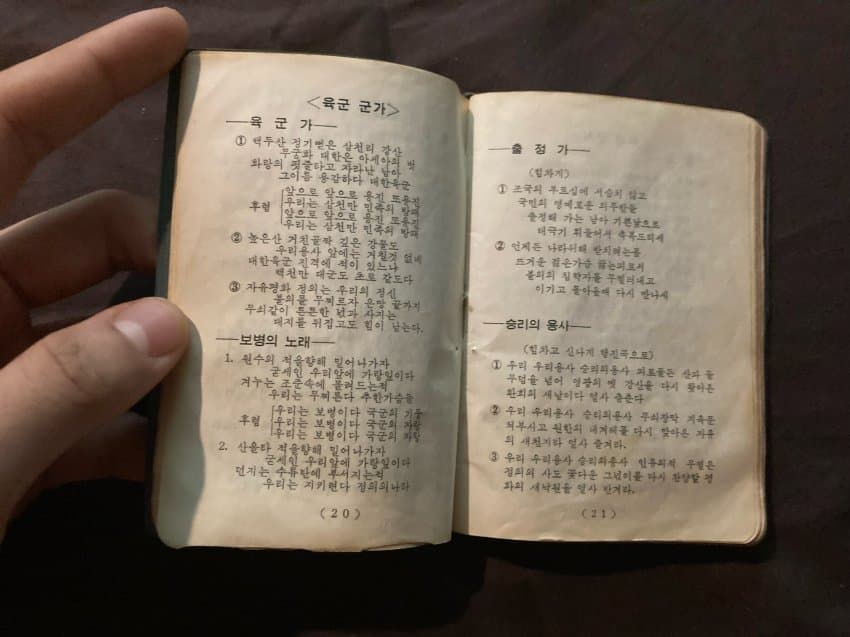 <육군 군가>
육 군 가
① 백두산 정기뻗은 삼천리 강산
무궁화 대한은 아세아의 빛
화랑의 핏줄타고 자라난 남아
그이름 용감하다 대한육군
후렴
앞으로 앞으로 용진 또용진
우리는 삼천만 민족의 방패
앞으로 앞으로 용진 또용진
우리는 삼천만 민족의 방패
② 높은산 거친골짝 깊은 강물도
우리용사 앞에는 거칠것 없네
대한육군 진격에 적이 있느냐
백천만 대군도 초로 같도다
③ 자유평화 정의는 우리의 정신
불의를 무찌르자 은땅 끝까지
무쇠같이 튼튼한 넋과 사지는
대지를 뒤집고도 힘이 남는다.
보병의 노래
1. 원수의 적을향해 밀어나가자
굳세인 우리앞에 가랑잎이다
겨누는 조준속에 몰려드는적
우리는 무찌른다 주한가슴을
후렴
우리는 보병이다 국군의 기둥
우리는 보병이다 국군의 자랑
우리는 보병이다 국군의 자랑
2. 산을타 적을향해 밀어나가자
굳세인 우리앞에 가랑잎이다
던지는 수류탄에 부서지는적
우리는 지키련다 정의의나라
(20)
출 정 가
(힘차게)
① 조국의 부르심에 서슴치 않고
국민의 영예로운 의무받들
출정해 가는 남아 기쁜낯으로
태극기 휘둘어서 축복드리세
② 언제든 나라위해 바치려는몸
뜨거운 젊은가슴 끓는피로서
불의의 침략자를 무찔러내고
이기고 돌아올때 다시 만나세
승리의 용사
(힘차고 신나게 행진곡으로)
① 우리 우리용사 승리의용사 피로물든 산과 들
무덤을 넘어 영광의 옛 강산을 다시 찾아온
환희의 새날이다 얼사 춤춘다
② 우리 우리용사 승리의용사 무쇠장막 지옥문
쳐부시고 원한의 내겨레를 다시 맞아온 자유
의 새천지라 얼사 즐겨라.
③ 우리 우리용사 승리의용사 원유의적 무찔은
정의의 사도 꽃다운 그넋이를 다시 찬양할 평
화의 새낙원을 얼사 반겨라.
(21)